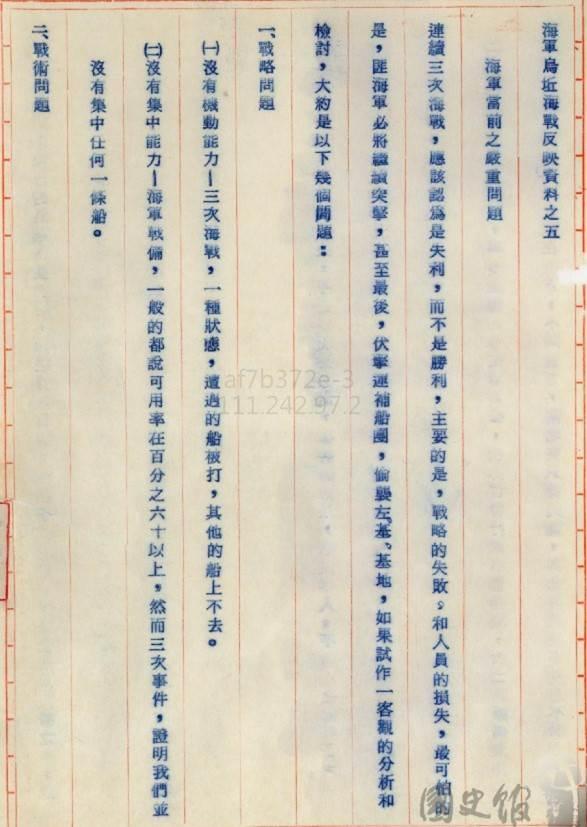 海軍烏坵海戰反映資料之五
海軍當前之嚴重問題
連續三次海戰，應該認為是失利，而不是勝利，主要的是，戰略的失敗。和人員的損失，最可怕的
是，匪海軍必將繼續突擊，甚至最後，伏擊運補船團，偷襲左、基、基地，如果試作一客觀的分析和
檢討，大約是以下幾個問題：
一、戰略問題
㈠沒有機動能力－三次海戰，一種狀態，遭過的船被打，其他的船上不去。
㈡沒有集中能力－海軍戰備，一般的都說可用率在百分之六十以上，然而三次事件，證明我們並
沒有集中任何一條船。
二、戰術問題
af7b372e-3
111.242.97.2
國史館